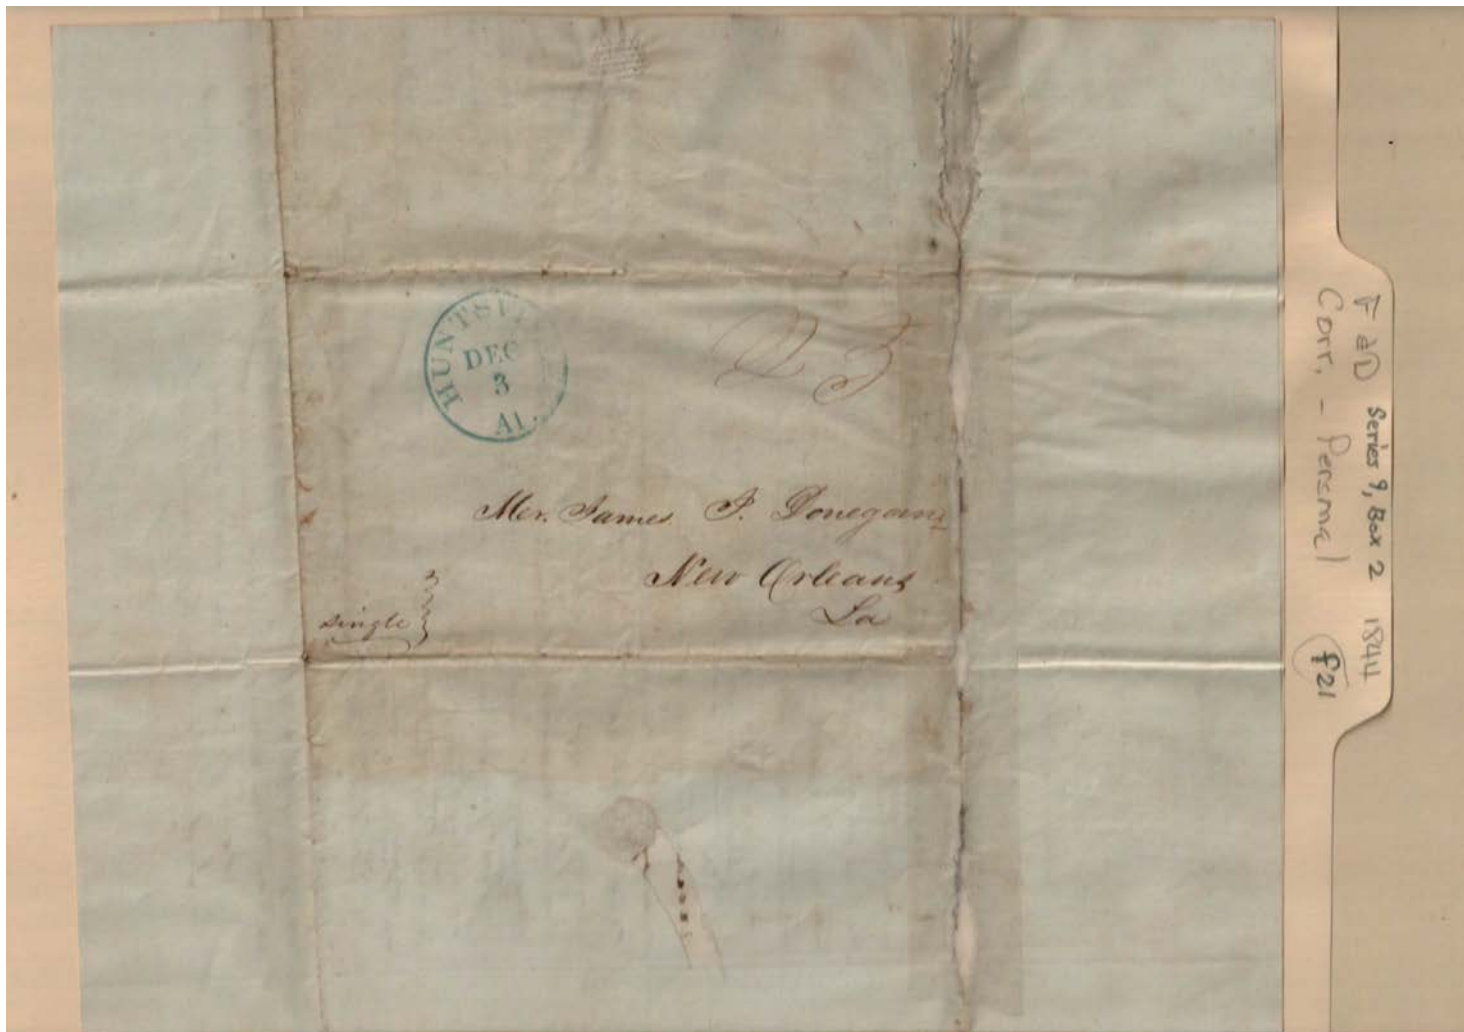 HUNTSV
DEC
3
Al.
25
Mr. James J. Donegan
New Orleans
La
single
F&D Series 9, Box 2 1844
Corr. - Personal f21